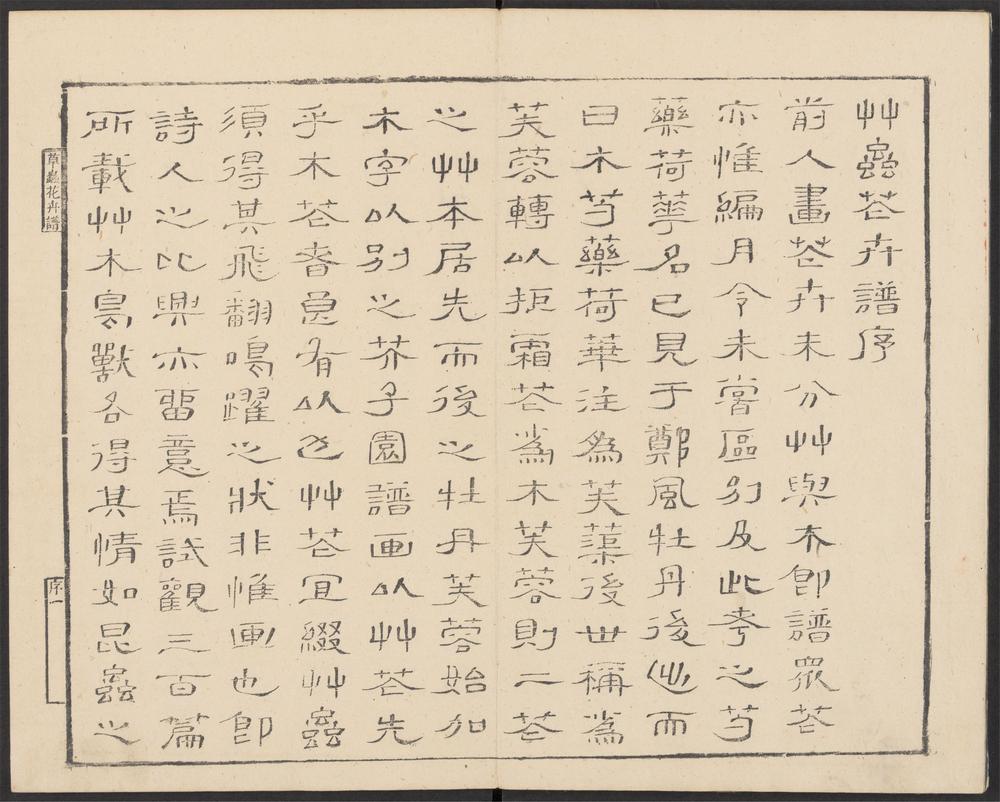 艸蟲苍卉譜序
前人畫苍卉未分艸與木即譜眾苍
亦惟編月令未嘗區別及此考之芍
藥荷華名已見于鄭風牡丹後出而
曰木芍藥荷華注為芙蕖後世稱為
芙蓉轉以拒霜苍為木芙蓉則二苍
之艸本居先而後之牡丹芙蓉始加
木字以別之芥子園譜画以艸苍先
乎木苍者良有以也艸苍宜綴艸蟲
須得其飛翻鳴躍之狀非惟画也即
詩人之比興亦畱意焉試觀三百篇
所載艸木鳥獸各得其情如昆蟲之
草蟲花卉譜
序一